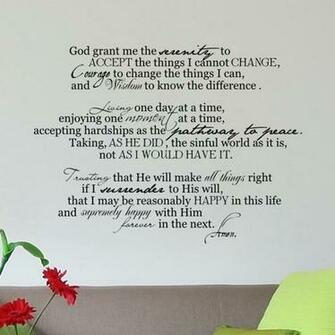 God grant me the serenity to
ACCEPT the things I cannot CHANGE,
Courage to change the things I can,
and Wisdom to know the difference .
Living one day at a time,
enjoying one moment at a time,
accepting hardships as the pathway to peace.
Taking, AS HE DID , the sinful world as it is,
not AS I WOULD HAVE IT.
Trusting that He will make all things right
if I surrender to His will,
that I may be reasonably HAPPY in this life
and supremely happy with Him
forever in the next.
Amen.